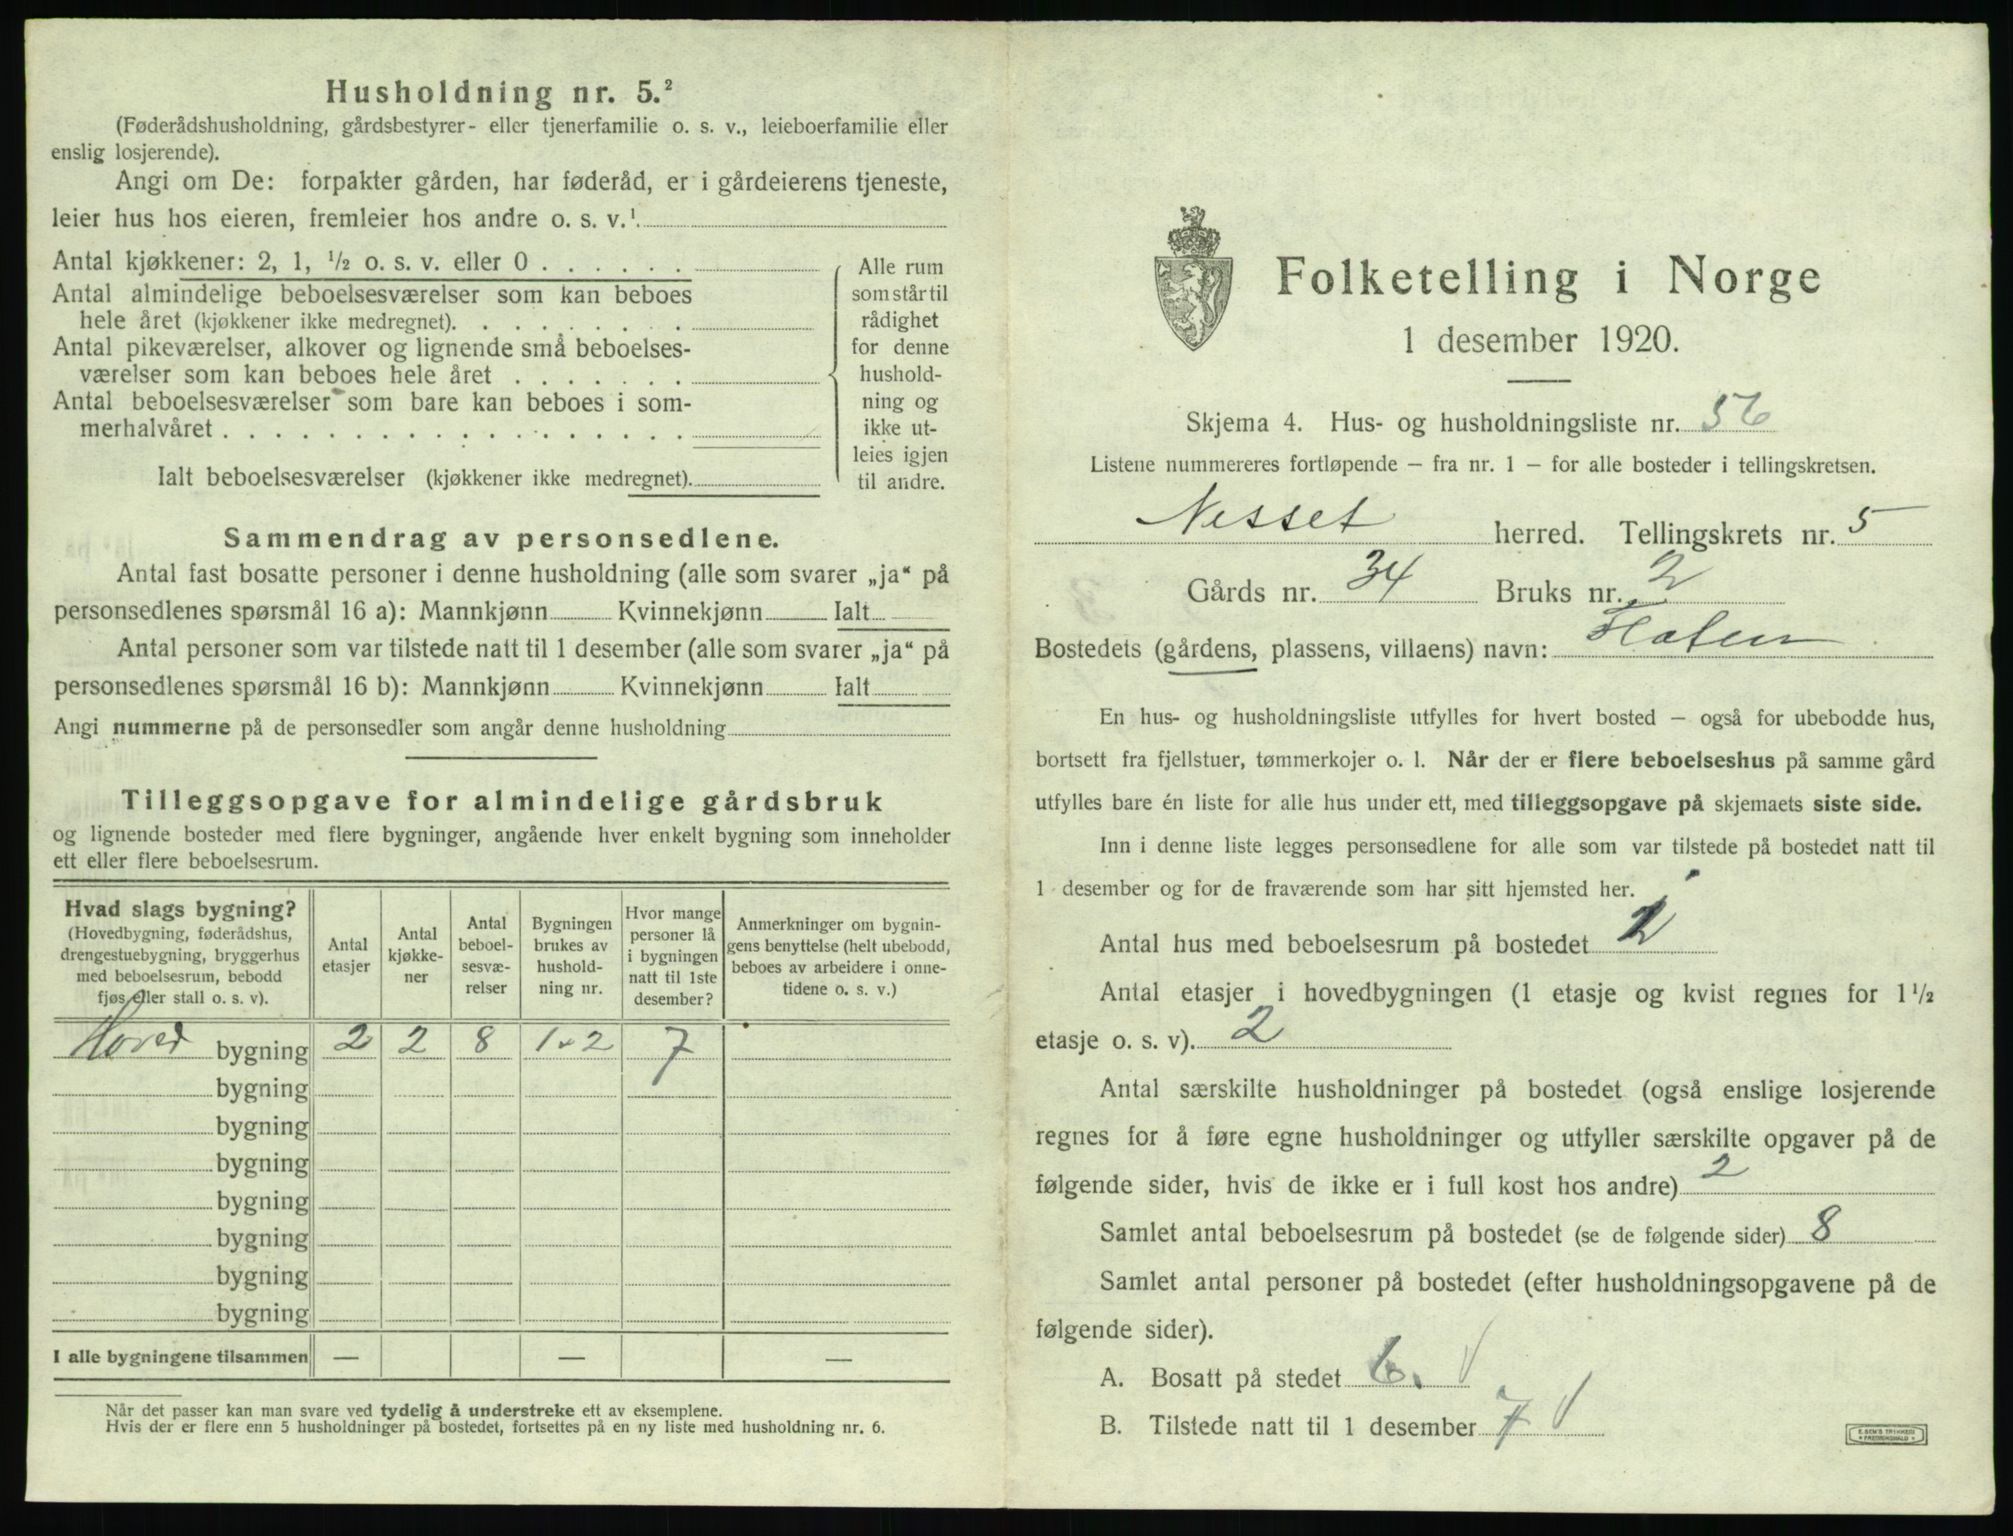 Husholdning nr. 5.²
(Føderådshusholdning, gårdsbestyrer- eller tjenerfamilie o. s. v., leieboerfamilie eller
enslig losjerende).
Angi om De: forpakter gården, har føderåd, er i gårdeierens tjeneste,
leier hus hos eieren, fremleier hos andre o. s. v.¹
Antal kjøkkener: 2, 1, ½ o. s. v. eller 0 . . . . . .
Antal almindelige beboelsesværelser som kan beboes
hele året (kjøkkener ikke medregnet). . . . . . . . .
Antal pikeværelser, alkover og lignende små beboelses-
værelser som kan beboes hele året . . . . . . .
Antal beboelsesværelser som bare kan beboes i som-
merhalvåret . . . . . . . . . . . . . . . . . .
Ialt beboelsesværelser (kjøkkener ikke medregnet).
Alle rum
som står til
rådighet
for denne
hushold-
ning og
ikke ut-
leies igjen
til andre.
Sammendrag av personsedlene.
Antal fast bosatte personer i denne husholdning (alle som svarer „ja“ på
personsedlenes spørsmål 16 a): Mannkjønn Kvinnekjønn Ialt
Antal personer som var tilstede natt til 1 desember (alle som svarer „ja“ på
personsedlenes spørsmål 16 b): Mannkjønn Kvinnekjønn Ialt
Angi nummerne på de personsedler som angår denne husholdning
Tilleggsopgave for almindelige gårdsbruk
og lignende bosteder med flere bygninger, angående hver enkelt bygning som inneholder
ett eller flere beboelsesrum.
Hvad slags bygning?
(Hovedbygning, føderådshus,
drengestuebygning, bryggerhus
med beboelsesrum, bebodd
fjøs eller stall o. s. v).
Antal
etasjer
Antal
kjøkke-
ner
Antal
beboel-
sesvæ-
relser
Bygningen
brukes av
hushold-
ning nr.
Hvor mange
personer lå
i bygningen
natt til 1ste
desember?
Anmerkninger om bygnin-
gens benyttelse (helt ubebodd,
beboes av arbeidere i onne-
tidene o. s. v.)
Hoved bygning 2 2 8 1-2 7
bygning
bygning
bygning
bygning
bygning
bygning
bygning
I alle bygningene tilsammen — — —
Når det passer kan man svare ved tydelig å understreke ett av eksemplene.
Hvis der er flere enn 5 husholdninger på bostedet, fortsettes på en ny liste med husholdning nr. 6.
Folketelling i Norge
1 desember 1920.
Skjema 4. Hus- og husholdningsliste nr. 56
Listene nummereres fortløpende – fra nr. 1 – for alle bosteder i tellingskretsen.
Nesset herred. Tellingskrets nr. 5
Gårds nr. 34 Bruks nr. 2
Bostedets (gårdens, plassens, villaens) navn: Flaten
En hus- og husholdningsliste utfylles for hvert bosted – også for ubebodde hus,
bortsett fra fjellstuer, tømmerkojer o. l. Når der er flere beboelseshus på samme gård
utfylles bare én liste for alle hus under ett, med tilleggsopgave på skjemaets siste side.
Inn i denne liste legges personsedlene for alle som var tilstede på bostedet natt til
1 desember og for de fraværende som har sitt hjemsted her.
Antal hus med beboelsesrum på bostedet 1
Antal etasjer i hovedbygningen (1 etasje og kvist regnes for 1½
etasje o. s. v). 2
Antal særskilte husholdninger på bostedet (også enslige losjerende
regnes for å føre egne husholdninger og utfyller særskilte opgaver på de
følgende sider, hvis de ikke er i full kost hos andre) 2
Samlet antal beboelsesrum på bostedet (se de følgende sider) 8
Samlet antal personer på bostedet (efter husholdningsopgavene på de
følgende sider).
A. Bosatt på stedet 6.
B. Tilstede natt til 1 desember 7